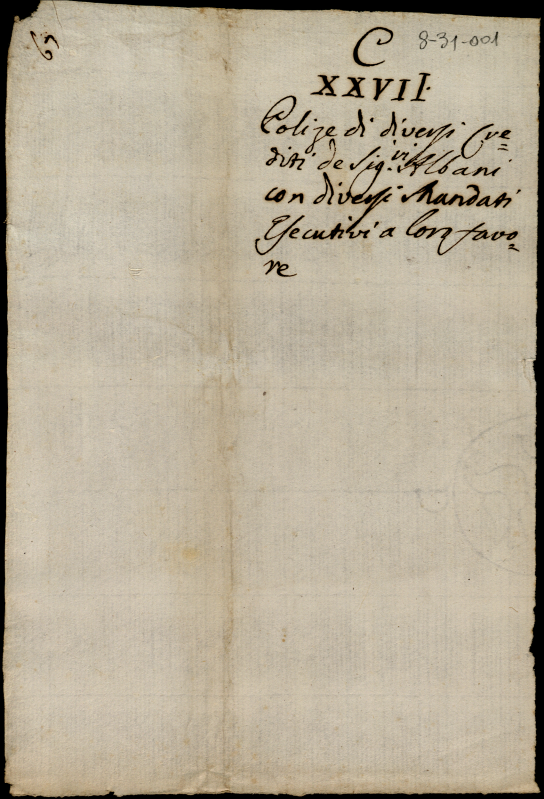 C 8-31-001
XXVII.
Polize di diversi Cre=
diti de Sig.ri Albani
con diversi Mandati
Esecutivi a loro favo=
re